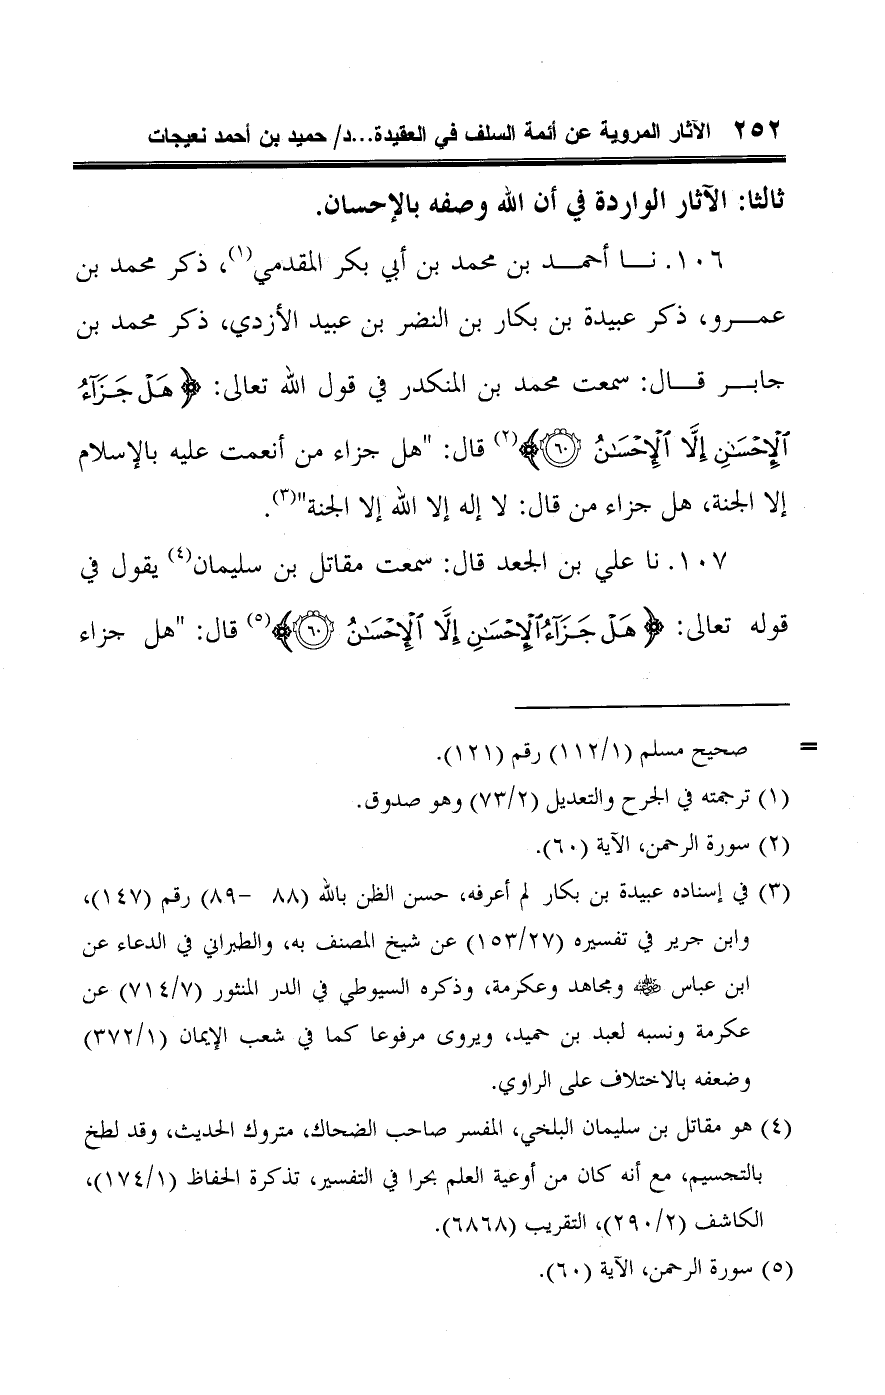 ٢٥٢ الآثار المروية عن أئمة السلف في العقيدة...د/ حميد بن أحمد نعيجات
ثالثا: الآثار الواردة في أن الله وصفه بالإحسان.
١٠٦. نـــا أحمـــد بن محمد بن أبي بكر المقدمي(١)، ذكر محمد بن
عمـــرو، ذكر عبيدة بن بكار بن النضر بن عبيد الأزدي، ذكر محمد بن
جابـــر قـــال: سمعت محمد بن المنكدر في قول الله تعالى: ﴿هَلْ جَزَآءُ
ٱلْإِحْسَـٰنِ إِلَّا ٱلْإِحْسَـٰنُ ٦٠﴾(٢) قال: "هل جزاء من أنعمت عليه بالإسلام
إلا الجنة، هل جزاء من قال: لا إله إلا الله إلا الجنة"(٣).
١٠٧. نا علي بن الجعد قال: سمعت مقاتل بن سليمان(٤) يقول في
قوله تعالى: ﴿هَلْ جَزَآءُ ٱلْإِحْسَـٰنِ إِلَّا ٱلْإِحْسَـٰنُ ٦٠﴾(٥) قال: "هل جزاء
= صحيح مسلم (١١٢/١) رقم (١٢١).
(١) ترجمته في الجرح والتعديل (٧٣/٢) وهو صدوق.
(٢) سورة الرحمن، الآية (٦٠).
(٣) في إسناده عبيدة بن بكار لم أعرفه، حسن الظن بالله (٨٨ -٨٩) رقم (١٤٧)،
وابن جرير في تفسيره (١٥٣/٢٧) عن شيخ المصنف به، والطبراني في الدعاء عن
ابن عباس ومجاهد وعكرمة، وذكره السيوطي في الدر المنثور (٧١٤/٧) عن
عكرمة ونسبه لعبد بن حميد، ويروى مرفوعا كما في شعب الإيمان (٣٧٢/١)
وضعفه بالاختلاف على الراوي.
(٤) هو مقاتل بن سليمان البلخي، المفسر صاحب الضحاك، متروك الحديث، وقد لطخ
بالتجسيم، مع أنه كان من أوعية العلم بحرا في التفسير، تذكرة الحفاظ (١٧٤/١)،
الكاشف (٢٩٠/٢)، التقريب (٦٨٦٨).
(٥) سورة الرحمن، الآية (٦٠).